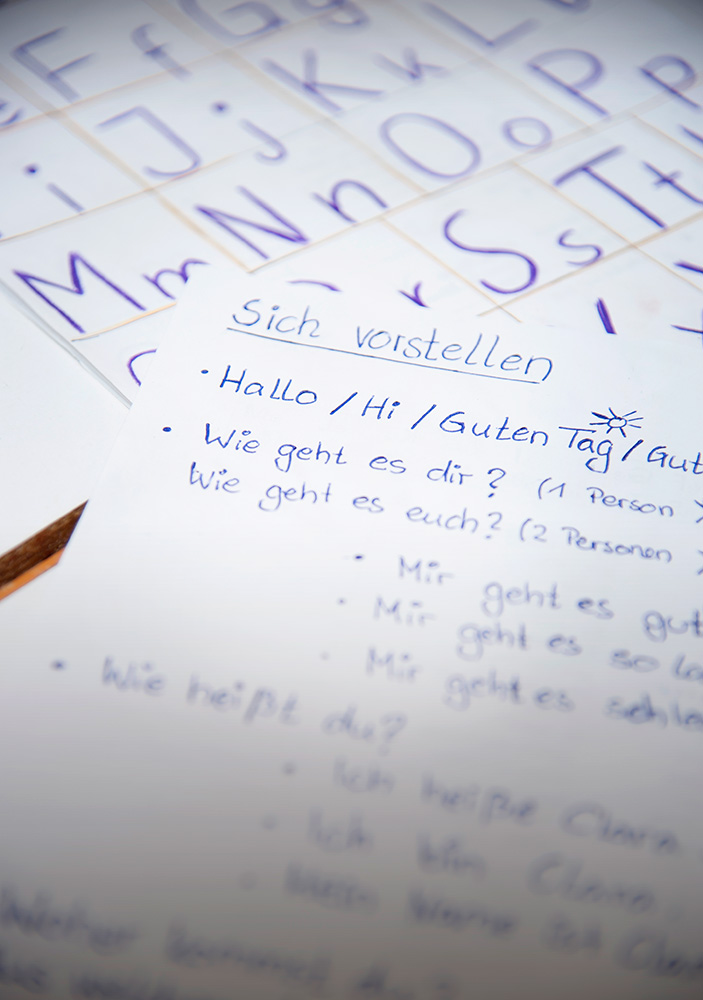 G g L
F f K k P p
J j O o
i N n T t
M m S s
Sich vorstellen
• Hallo / Hi / Guten Tag / Gut
• Wie geht es dir? (1 Person
Wie geht es euch? (2 Personen
• Mir geht es gut
• Mir geht es so
• Mir geht es
• Wie heißt du?
• Ich heiße Clara
• Ich bin Clara.
• Mein Name ist